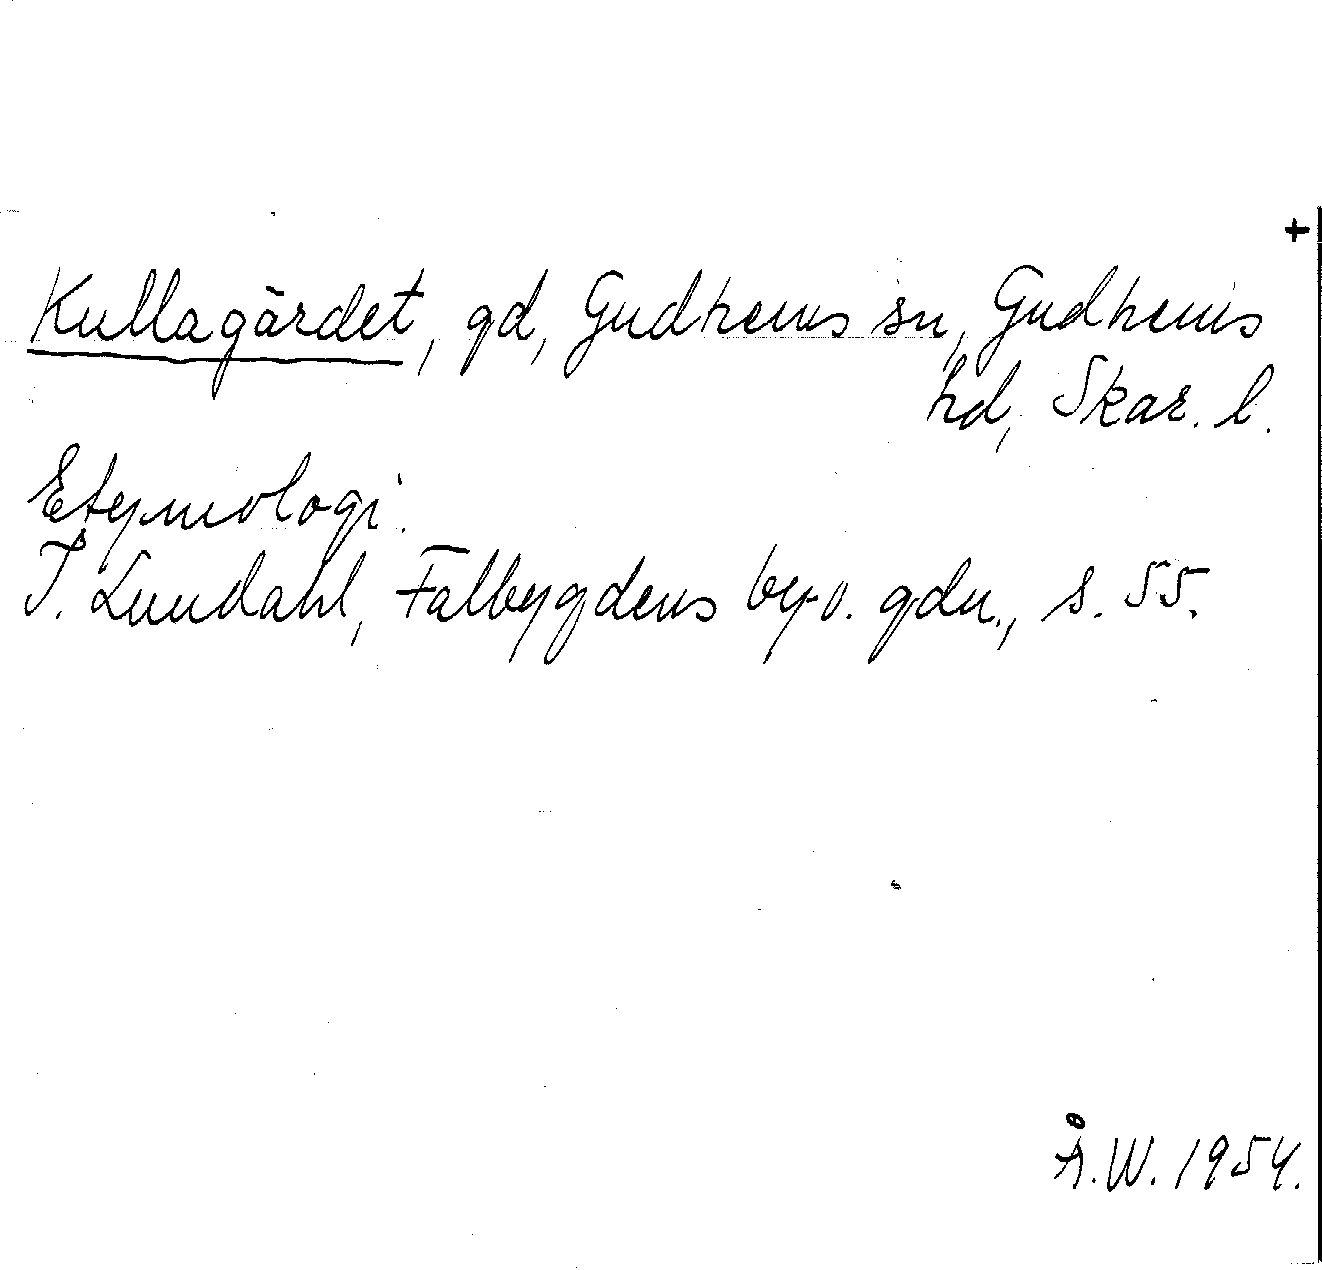 +
Kullagärdet, gd, Gudhems sn, Gudhems
hd, Skar. l.
Etymologi.
I. Lundahl, Falbygdens by- o. gdn., s. 55.
Å.W. 1954.